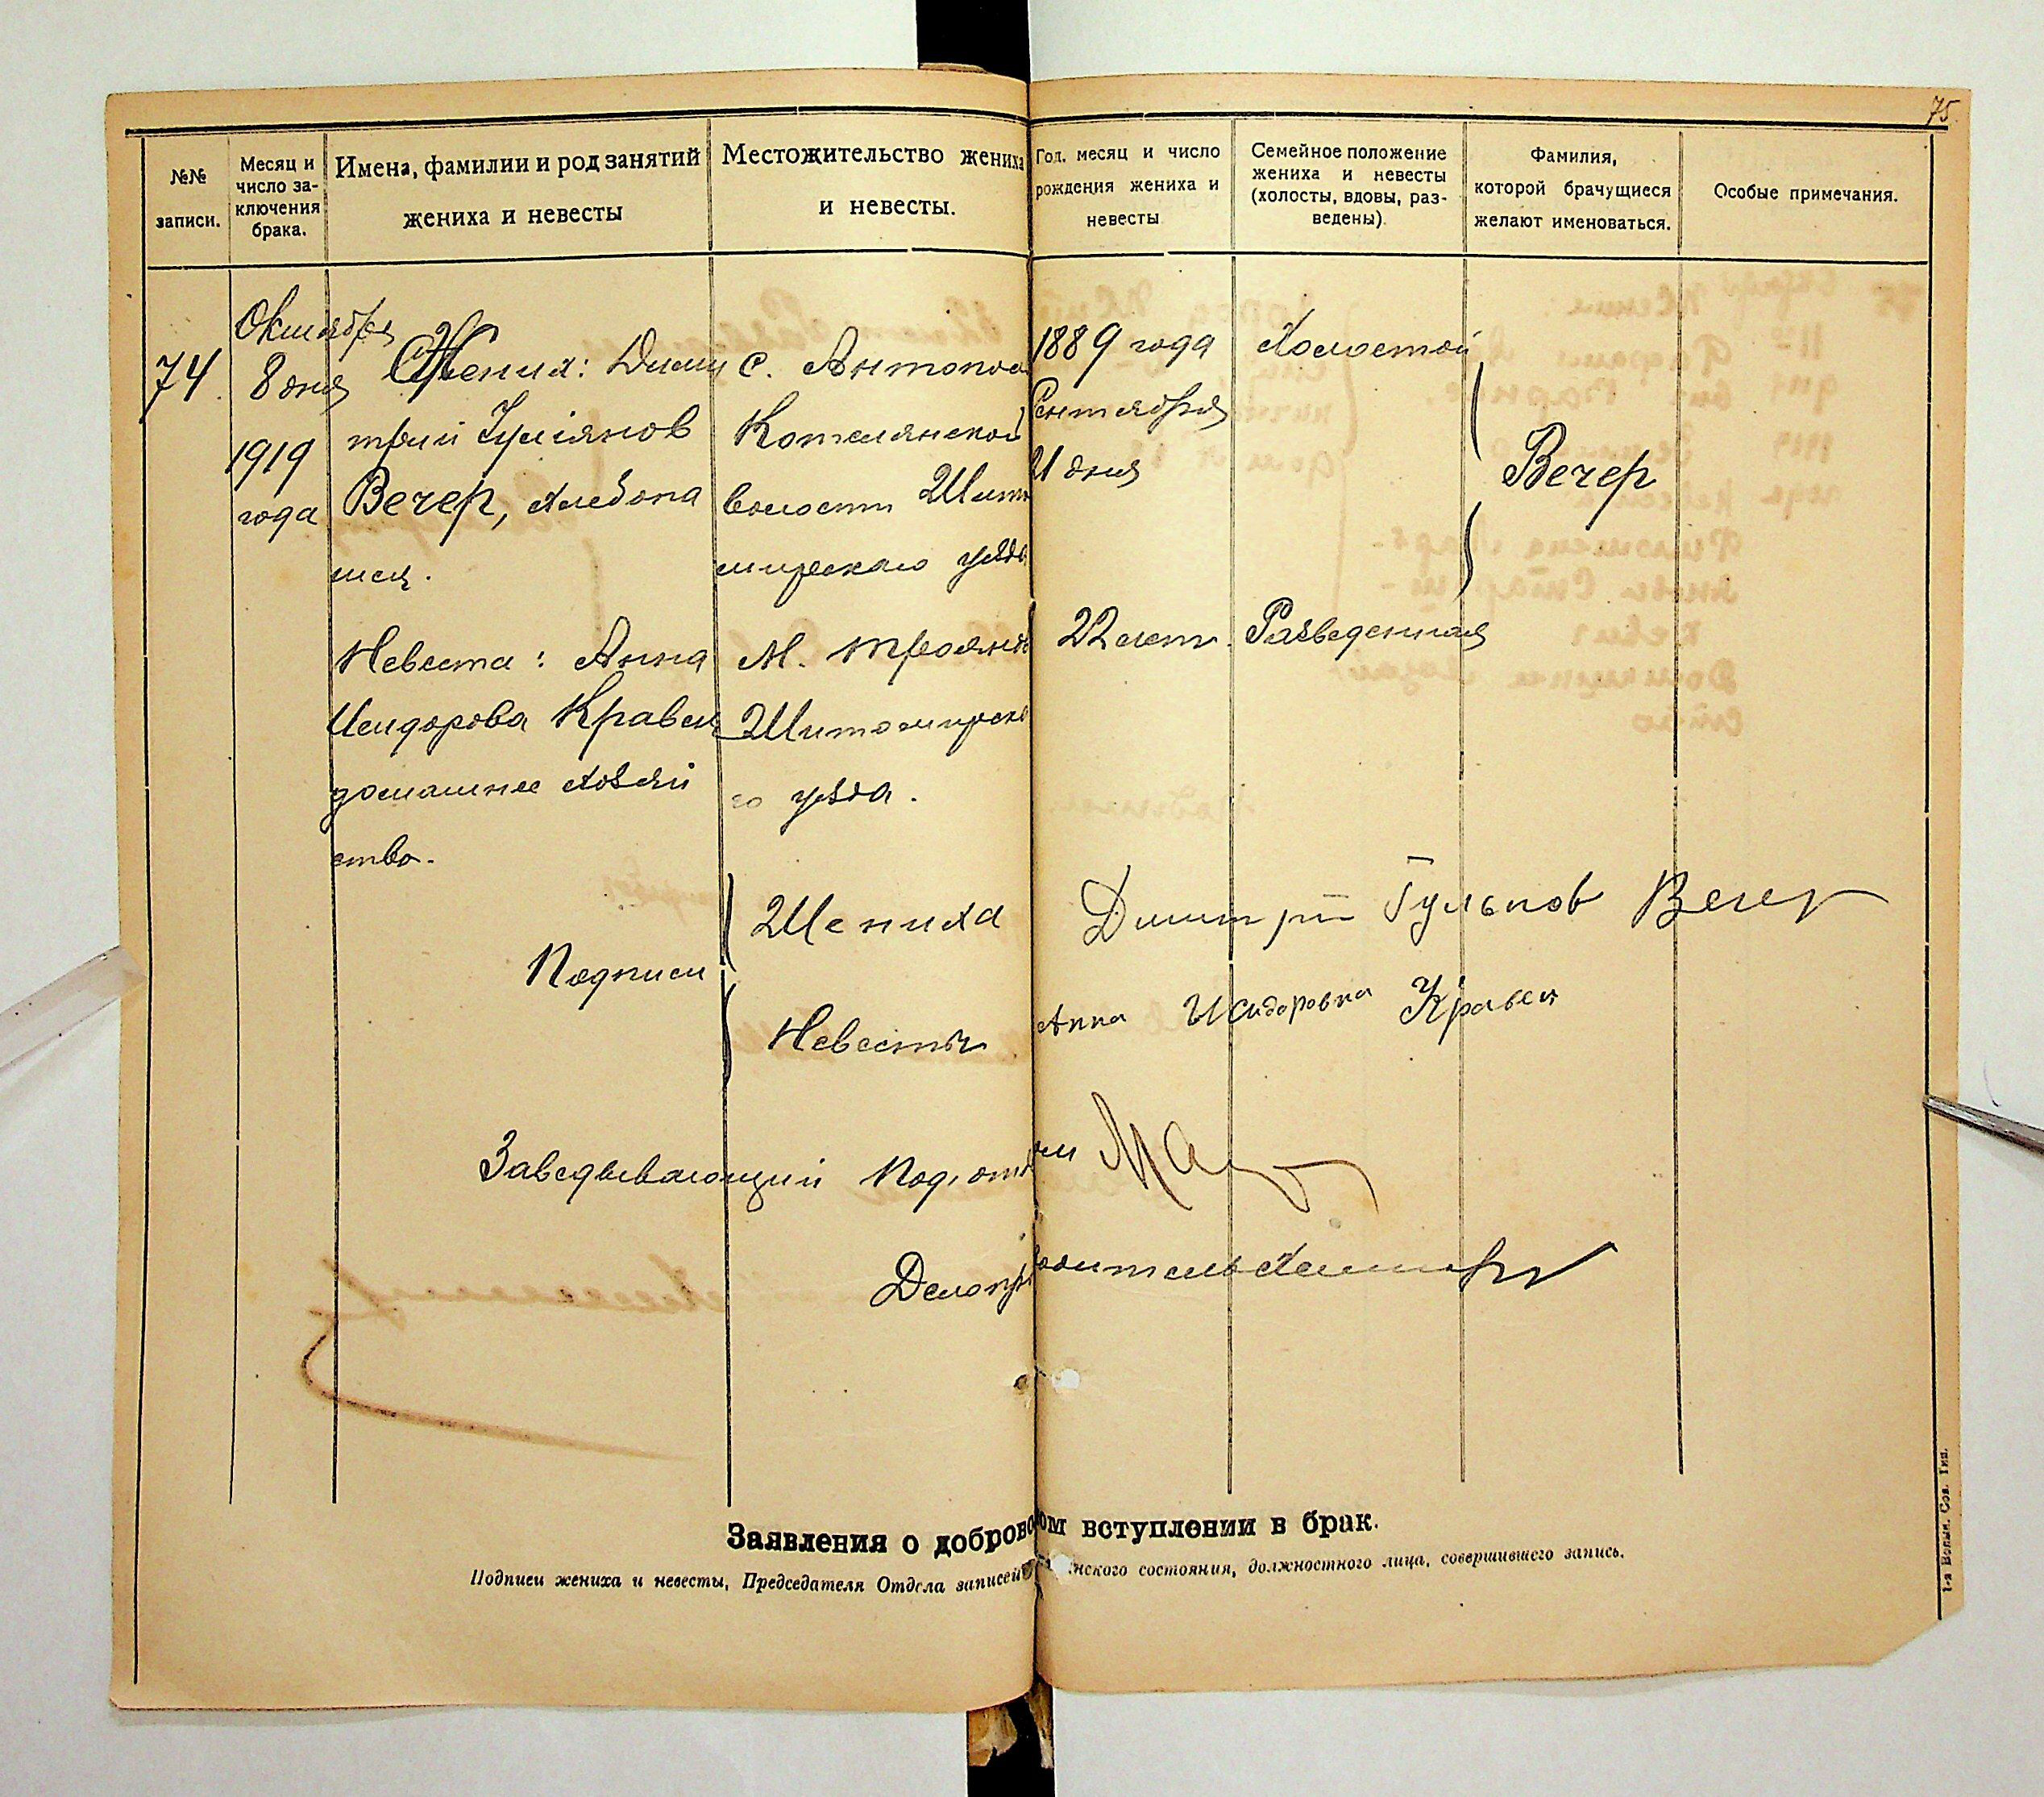 75
№№ записи.
Месяц и число за-
ключения брака.
Имена, фамилии и род занятий
жениха и невесты
Местожительство жениха
и невесты.
Год, месяц и число
рождения жениха и
невесты
Семейное положение
жениха и невесты
(холосты, вдовы, раз-
ведены).
Фамилия,
которой брачущиеся
желают именоваться.
Особые примечания.
74.
Октября
8 дня
1919
года
Жених: Дими
трий Гулiянов
Вечер, хлебопа
шец.
с. Антопол
Котелянской
волости Жит
мирскаго уѣзда
1889 года
Сентября
21 дня
Холостой
Вечер
Невеста: Анна
Исидорова Кравец
домашнее хозяй
ство.
М. Троянов
Житомирско
го уѣзда.
22 лет.
Разведенная
Подписи
Жениха
Димитрий Гульянов Вечер
Невесты
Анна Исидоровна Кравец
Заведывающий Под. отд
Делопр
водитель
Заявления о доброво ом вступлении в брак.
Подписи жениха и невесты, Председателя Отдела записей нского состояния, должностного лица, совершившего запись.
1-я Волын. Сов. Тип.